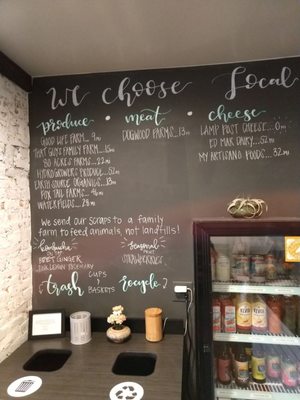 We Choose Local
produce • meat • cheese
GOOD LIFE FARM... 9mi
THAT GUYS FAMILY FARM... 15mi
80 ACRES FARMS... 22mi
HYDRO GROWERS PRODUCE... 52mi
ENRSH SOURCE ORGANICS... 18mi
FOX TAIL FARMS... 46mi
WATERFIELDS... 28mi
DOGWOOD FARMS... 13mi
LAMP POST CHEESE... 0mi
ED MAR DAIRY... 52mi
MY ARTISANO FOODS... 32mi
We send our scraps to a family
farm to feed animals, not landfills!
kombucha
BEET GINGER
ROSEMARY
seasonal
STRAWBERRIES
trash
CUPS,
BASKETS
recycle
KEVITA
KEVITA